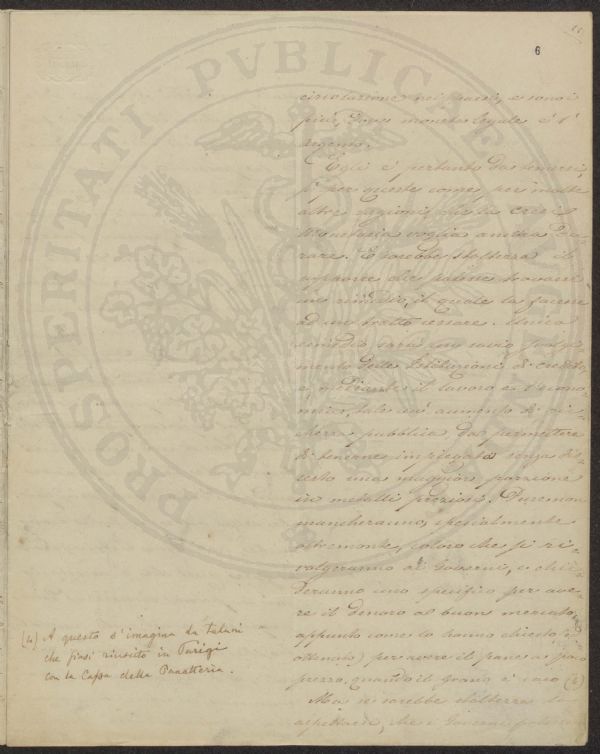 6
PROSPERITATI PUBLICAE
circolazione nei paesi, e sono i
più, dove moneta legale è l'
argento.
Egli è pertanto da temersi,
e per queste come per molte
altre ragioni, che la crisi
monetaria voglia ancora du-
rare. E sarebbe stoltezza il
supporre che potesse trovarsi
un rimedio, il quale la facesse
ad un tratto cessare. Unico
rimedio sarà un savio
mento delle Istituzioni di credito
e, mediante il lavoro e l'econo-
mia, tale un aumento di ric-
chezza pubblica da permettere
di tenerne impiegata senza dis-
sesto una maggior porzione
in metalli preziosi. Pure non
mancheranno, specialmente
oltremonte, coloro che si ri-
volgeranno ai Governi, e chie-
deranno uno specifico per ave-
re il denaro al buon mercato,
appunto come lo hanno chiesto (e
ottenuto) per avere il pane a poco
prezzo, quando il grano è caro (4)
Ma vi sarebbe stoltezza lo
aspettarsi, che i Governi
(4) A questo s'imagina da taluni
che siasi riuscito in Parigi
con la Cassa della Panatteria.